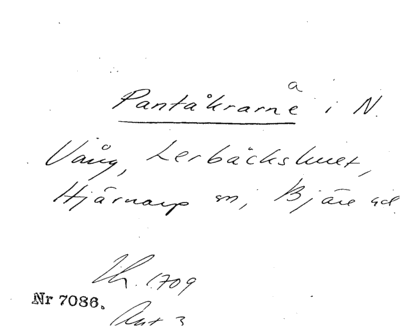 a
Pantåkrarne i N.
Vång, Lerbäckshult,
Hjärnarp sn, Bjäre hd.
Lh. 1709
Nr 7086.
Akt 3